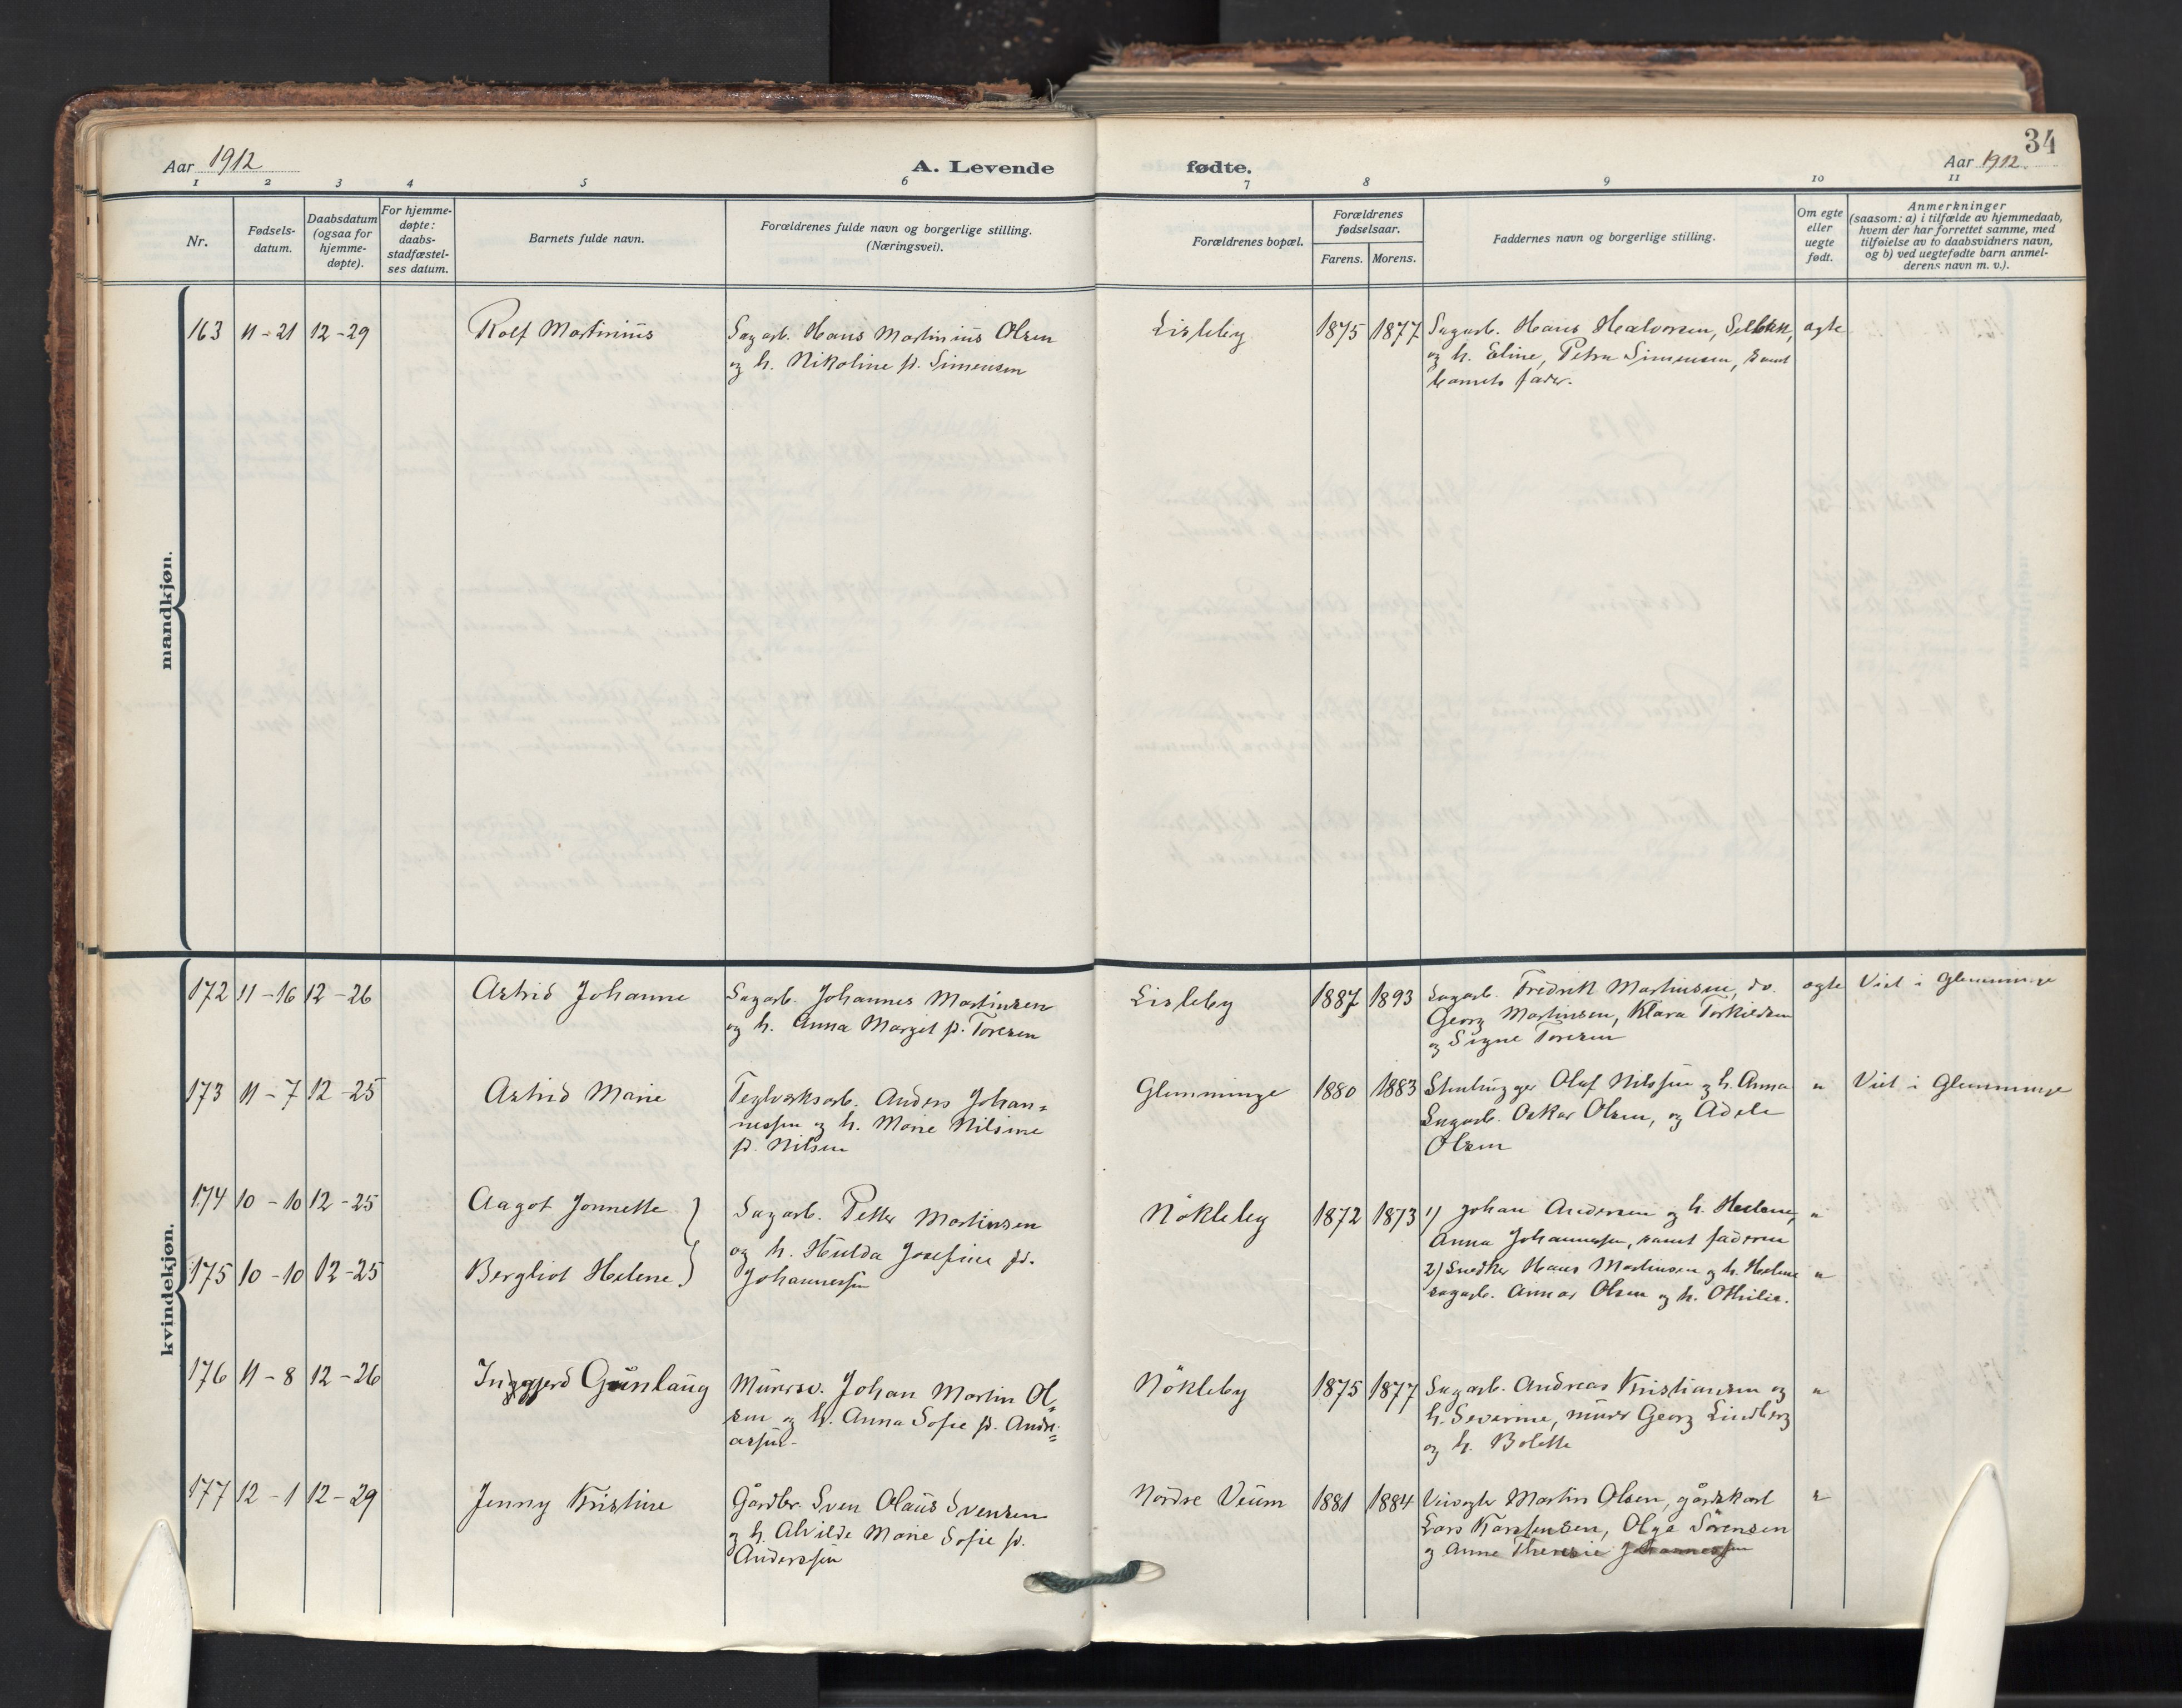 34
Aar 1912
A. Levende fødte.
Aar 1912.
1 2 3 4 5 6 7 8 9 10 11
Nr.
Fødsels-
datum.
Daabsdatum
(ogsaa for
hjemme-
døpte).
For hjemme-
døpte:
daabs-
stadfæstel-
ses datum.
Barnets fulde navn.
Forældrenes fulde navn og borgerlige stilling.
(Næringsvei).
Forældrenes bopæl.
Forældrenes
fødselsaar.
Farens. Morens.
Faddernes navn og borgerlige stilling.
Om egte
eller
uegte
født.
Anmerkninger
(saasom: a) i tilfælde av hjemmedaab,
hvem der har forrettet samme, med
tilføielse av to daabsvidners navn,
og b) ved uegtefødte barn anmel-
derens navn m. v.).
mandkjøn.
163 11-21 12-29
Rolf Martinius
Sagarb. Hans Martinius Olsen
og h. Nikoline f. Simensen
Lisleby
1875 1877
Sagarb. Hans Halvorsen, Selbak,
og h. Eline, Petra Simensen, samt
barnets fader.
egte
kvindekjøn.
172 11-16 12-26
Astrid Johanne
Sagarb. Johannes Martinsen
og h. Anna Margit f. Toresen
Lisleby
1887 1893
Sagarb. Fredrik Martinsen, do.
Georg Martinsen, Klara Torkildsen
og Signe Toresen
egte
Viet i Glemminge
173 11-7 12-25
Astrid Marie
Teglverksarb. Anders Johan=
nessen og h. Marie Nilsine
f. Nilsen
Glemminge
1880 1883
Stenhugger Olaf Nilssen og h. Anna
Sagarb. Oskar Olsen, og Adele
Olsen
"
Viet i Glemminge
174 10-10 12-25
Aagot Jonnette
175 10-10 12-25
Bergliot Helene
Sagarb. Petter Martinsen
og h. Hulda Josefine f.
Johannessen
Nökleby
1872 1873
1) Johan Andersen og h. Helene,
Anna Johannessen, samt faderen
"
2) Snedker Hans Martinsen og h. Helene
sagarb. Annar Olsen og h. Othilie.
"
176 11-8 12-26
Inggjerd Gunlaug
Murersv. Johan Martin Ol=
sen og h. Anna Sofie f. Andre=
assen.
Nökleby
1875 1877
Sagarb. Andreas Kristiansen og
h. Severine, murer Georg Lindberg
og h. Bolette
"
177 12-1 12-29
Jenny Kristine
Gårdbr. Sven Olaus Svensen
og h. Alvilde Marie Sofie f.
Anderssen
Nordre Veum
1881 1884
Veivogter Martin Olsen, gårdskarl
Lars Karstensen, Olga Sörensen
og Anne Theresie Johannessen
"